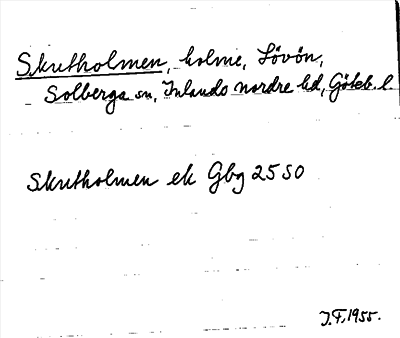 Skutholmen, holme, Lövön,
Solberga sn, Inlands nordre hd, Göteb. l.
Skutholmen ek Gbg 25 SO
J.F. 1955.